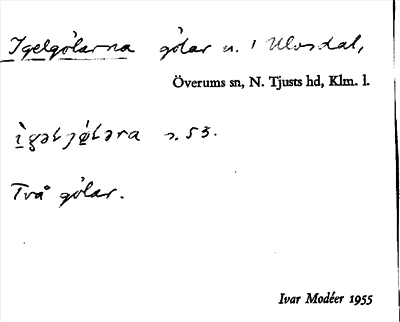 Igelgölarna gölar n. i Ulvsdal,
Överums sn, N. Tjusts hd, Klm. l.
s. 53.
Två gölar.
Ivar Modéer 1955